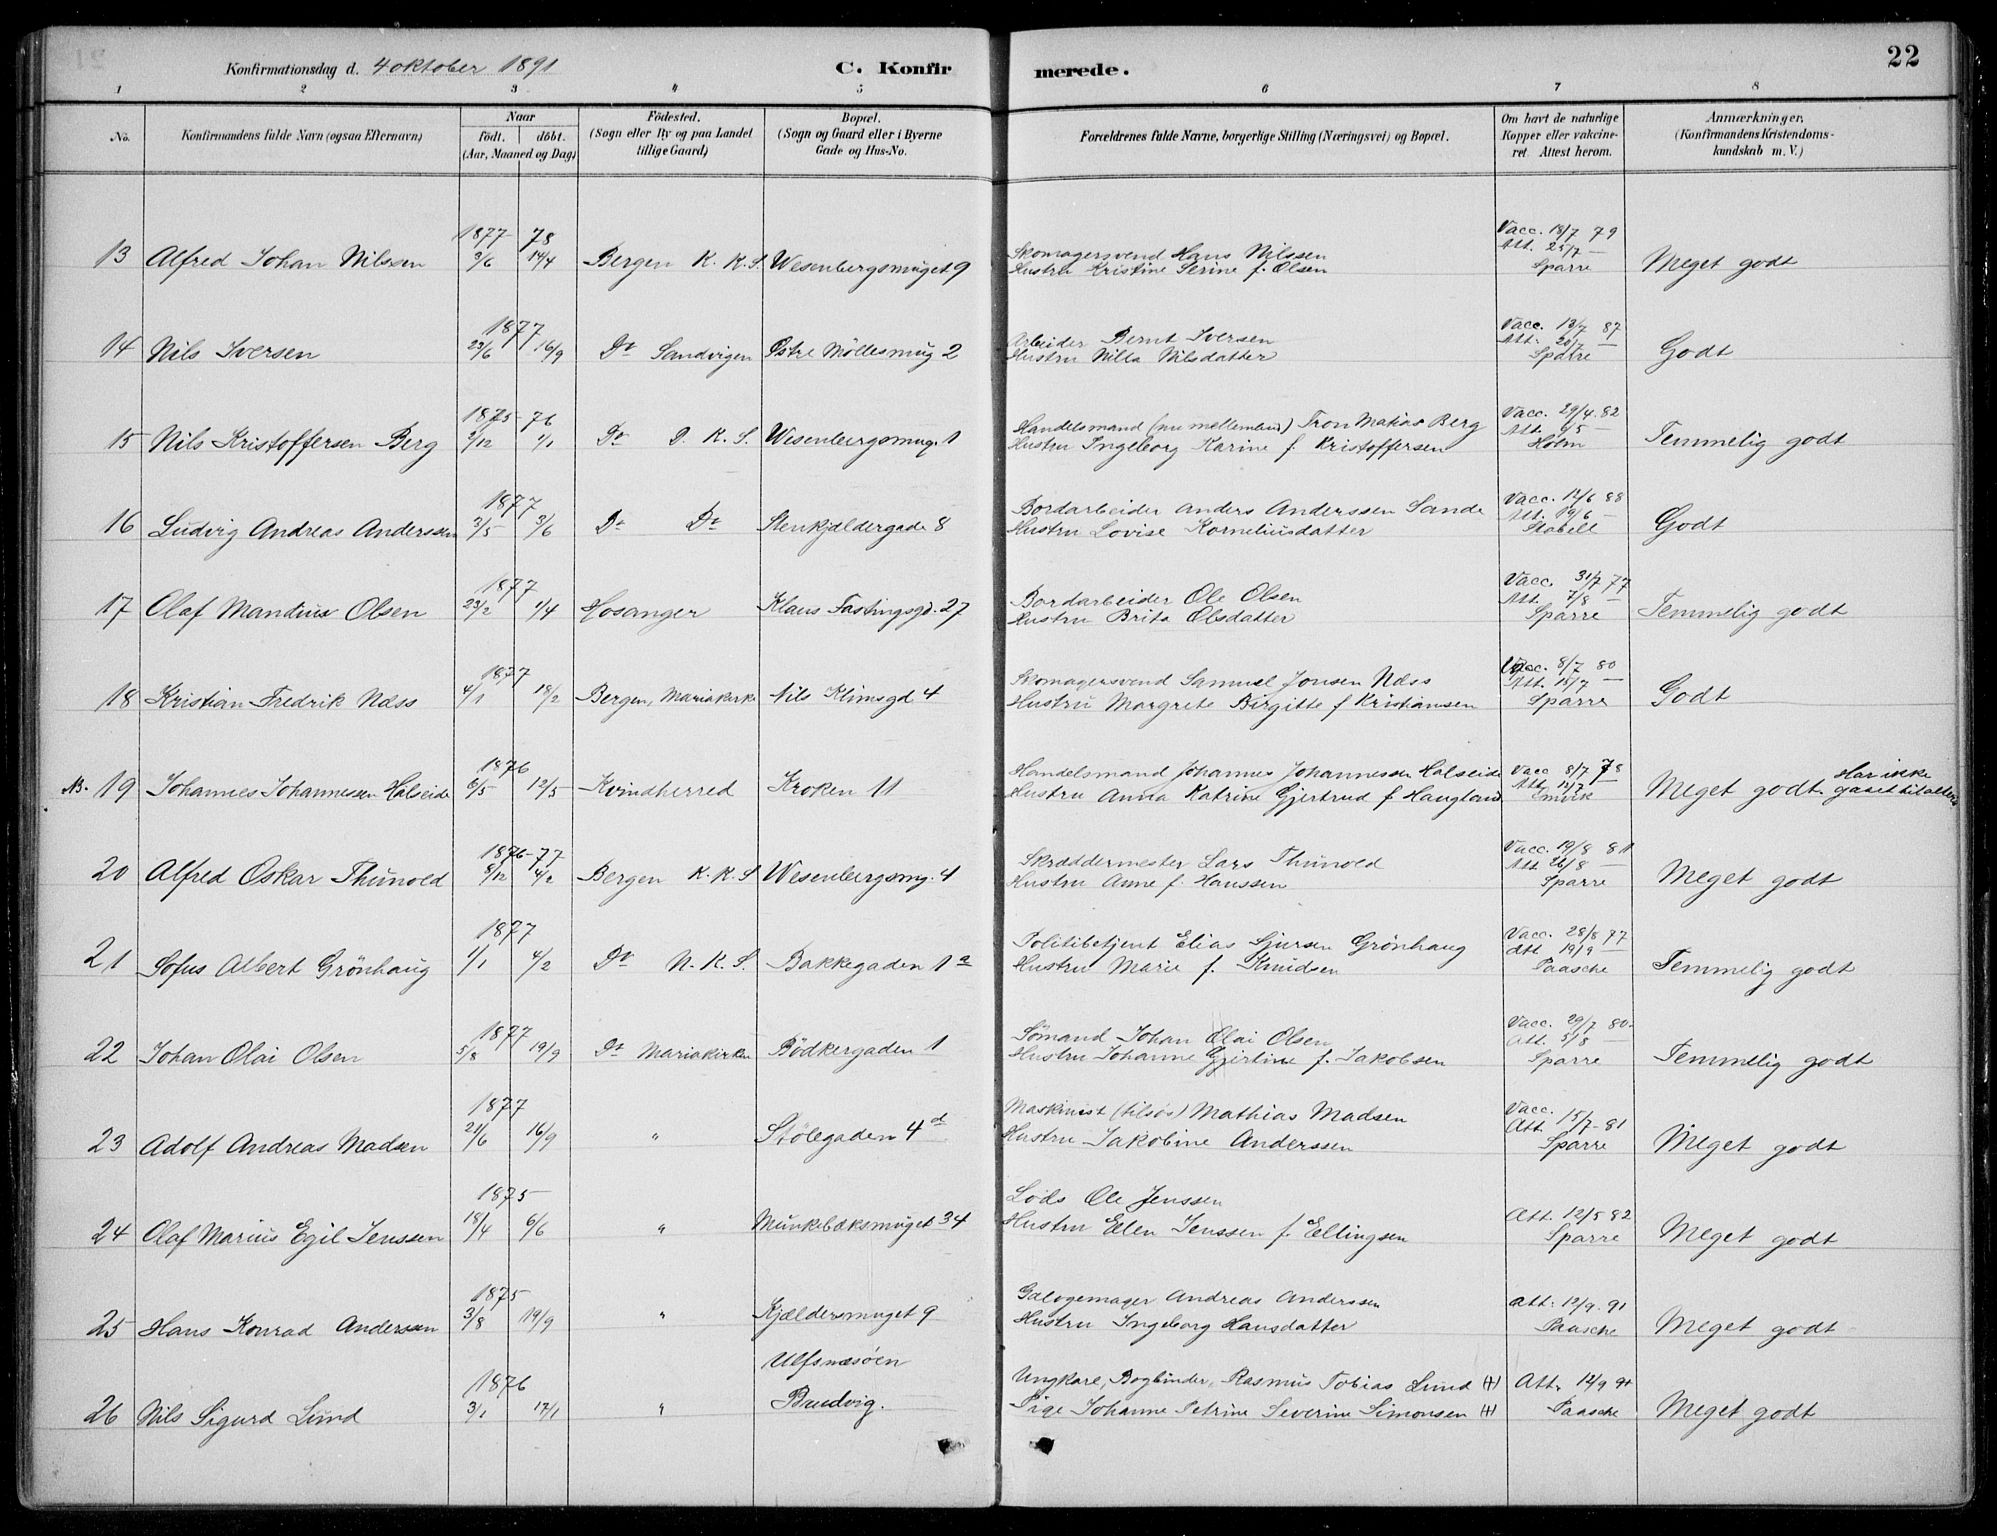 Konfirmationsdag d. 4 oktober 1891
C. Konfirmerede.
22
1 2 3 4 5 6 7 8
No.
Konfirmandens fulde Navn (ogsaa Efternavn)
Naar
födt. döbt.
(Aar, Maaned og Dag)
Födested.
(Sogn eller By og paa Landet
tillige Gaard)
Bopæl.
(Sogn og Gaard eller i Byerne
Gade og Hus-No.
Forældrenes fulde Navne, borgerlige Stilling (Næringsvei) og Bopæl.
Om havt de naturlige
Kopper eller vakcine-
ret. Attest herom.
Anmærkninger.
(Konfirmandens Kristendoms-
kundskab m. V.)
13 Alfred Johan Nilssen 1877 3/6 78 14/4 Bergen K. K. S. Wesenbergsmuget 9
Skomagersvend Hans Nilssen
Hustru Kristine Serine f. Olsen
Vacc. 18/7 79
Att. 25/7 —
Sparre
Meget godt
14 Nils Iversen 1877 23/6 16/9 Do Sandvigen Østre Möllesmug 2
Arbeider Bernt Iversen
Hustru Nilla Nilsdatter
Vacc. 13/7 87
Att. 20/7 —
Sparre
Godt
15 Nils Kristoffersen Berg 1875 5/12 76 1/1 Do D. K. S. Wesenbergsmug. 1
Handelsmand (nu mellemand) Tron Matias Berg
Hustru Ingeborg Karine f. Kristoffersen
Vacc. 29/4 82
Att. 6/5 —
Holm
Temmelig godt
16 Ludvig Andreas Anderssen 1877 3/5 3/6 Do Do Stenkjældergade 8
Bordarbeider Anders Anderssen Sande
Hustru Lovise Korneliusdatter
Vacc. 12/6 88
Att. 19/6 —
Stabell
Godt
17 Olaf Mandius Olsen 1877 23/2 1/4 Hosanger Klaus Fastingsgd. 27
Bordarbeider Ole Olsen
Hustru Brita Olsdatter
Vacc. 31/7 77
Att. 7/8 —
Sparre
Temmelig godt
18 Kristian Fredrik Næss 1877 4/1 18/2 Bergen, Mariakirke Nils Klimsgd. 4
Skomagersvend Samuel Jonsen Næss
Hustru Margrete Birgitte f Kristiansen
Vacc. 8/7 80
Att. 15/7 —
Sparre
Godt
NB. 19 Johannes Johannessen Halseide 1876 6/5 12/5 Kvindherred Kroken 11
Handelsmand Johannes Johannessen Halseide
Hustru Anna Katrine Gjertrud f Haugland
Vacc 8/7 78
Att.
Meget godt. Har ikke
gaaet til alters
20 Alfred Oskar Thunold 1876 8/12 77 4/2 Bergen K. K. S Wesenbergsmg. 4
Skræddermester Lars Thunold
Hustru Anne f. Hanssen
Vacc. 19/8 81
Att 26/8 —
Sparre
Meget godt
21 Sofus Albert Grönhaug 1877 1/1 4/2 Do N. K. S. Bakkegaden 1 a
Politibetjent Elias Sjursen Grönhaug
Hustru Marie f. Knudsen
Vacc. 28/8 77
Att 19/9 —
Paasche
Temmelig godt
22 Johan Olai Olsen 1877 5/8 19/9 Do Mariakirken Bödkergaden 1
Sömand Johan Olai Olsen
Hustru Johanne Gjertine f. Jakobsen
Vacc. 29/7 80
Att. 5/8 —
Sparre
Temmelig godt
23 Adolf Andreas Madsen 1877 21/6 16/9 " Stölegaden 4 d
Maskinist (tilsös) Mathias Madsen
Hustru Jakobine Anderssen
Vacc.
Att. 15/7 81
Sparre
Meget godt
24 Olaf Marius Egil Jenssen 1875 18/4 6/6 " Munkebæksmuget 34
Lods Ole Jenssen
Hustru Ellen Jenssen f. Ellingsen
Att. 12/5 82
Sparre
Meget godt
25 Hans Konrad Anderssen 1875 3/8 19/9 " Kjældersmuget 9
Galogemager Andreas Anderssen
Hustru Ingeborg Hansdatter
Att. 12/9 91
Paasche
Meget godt
26 Nils Sigurd Lund 1876 3/1 17/1 " Ulfsnæsöen
Bruvig.
Ungkarl, Bogbinder, Rasmus Tobias Lund
Pige Johanne Petrine Severine Simonsen
Att. 12/9 91
Paasche
Meget godt